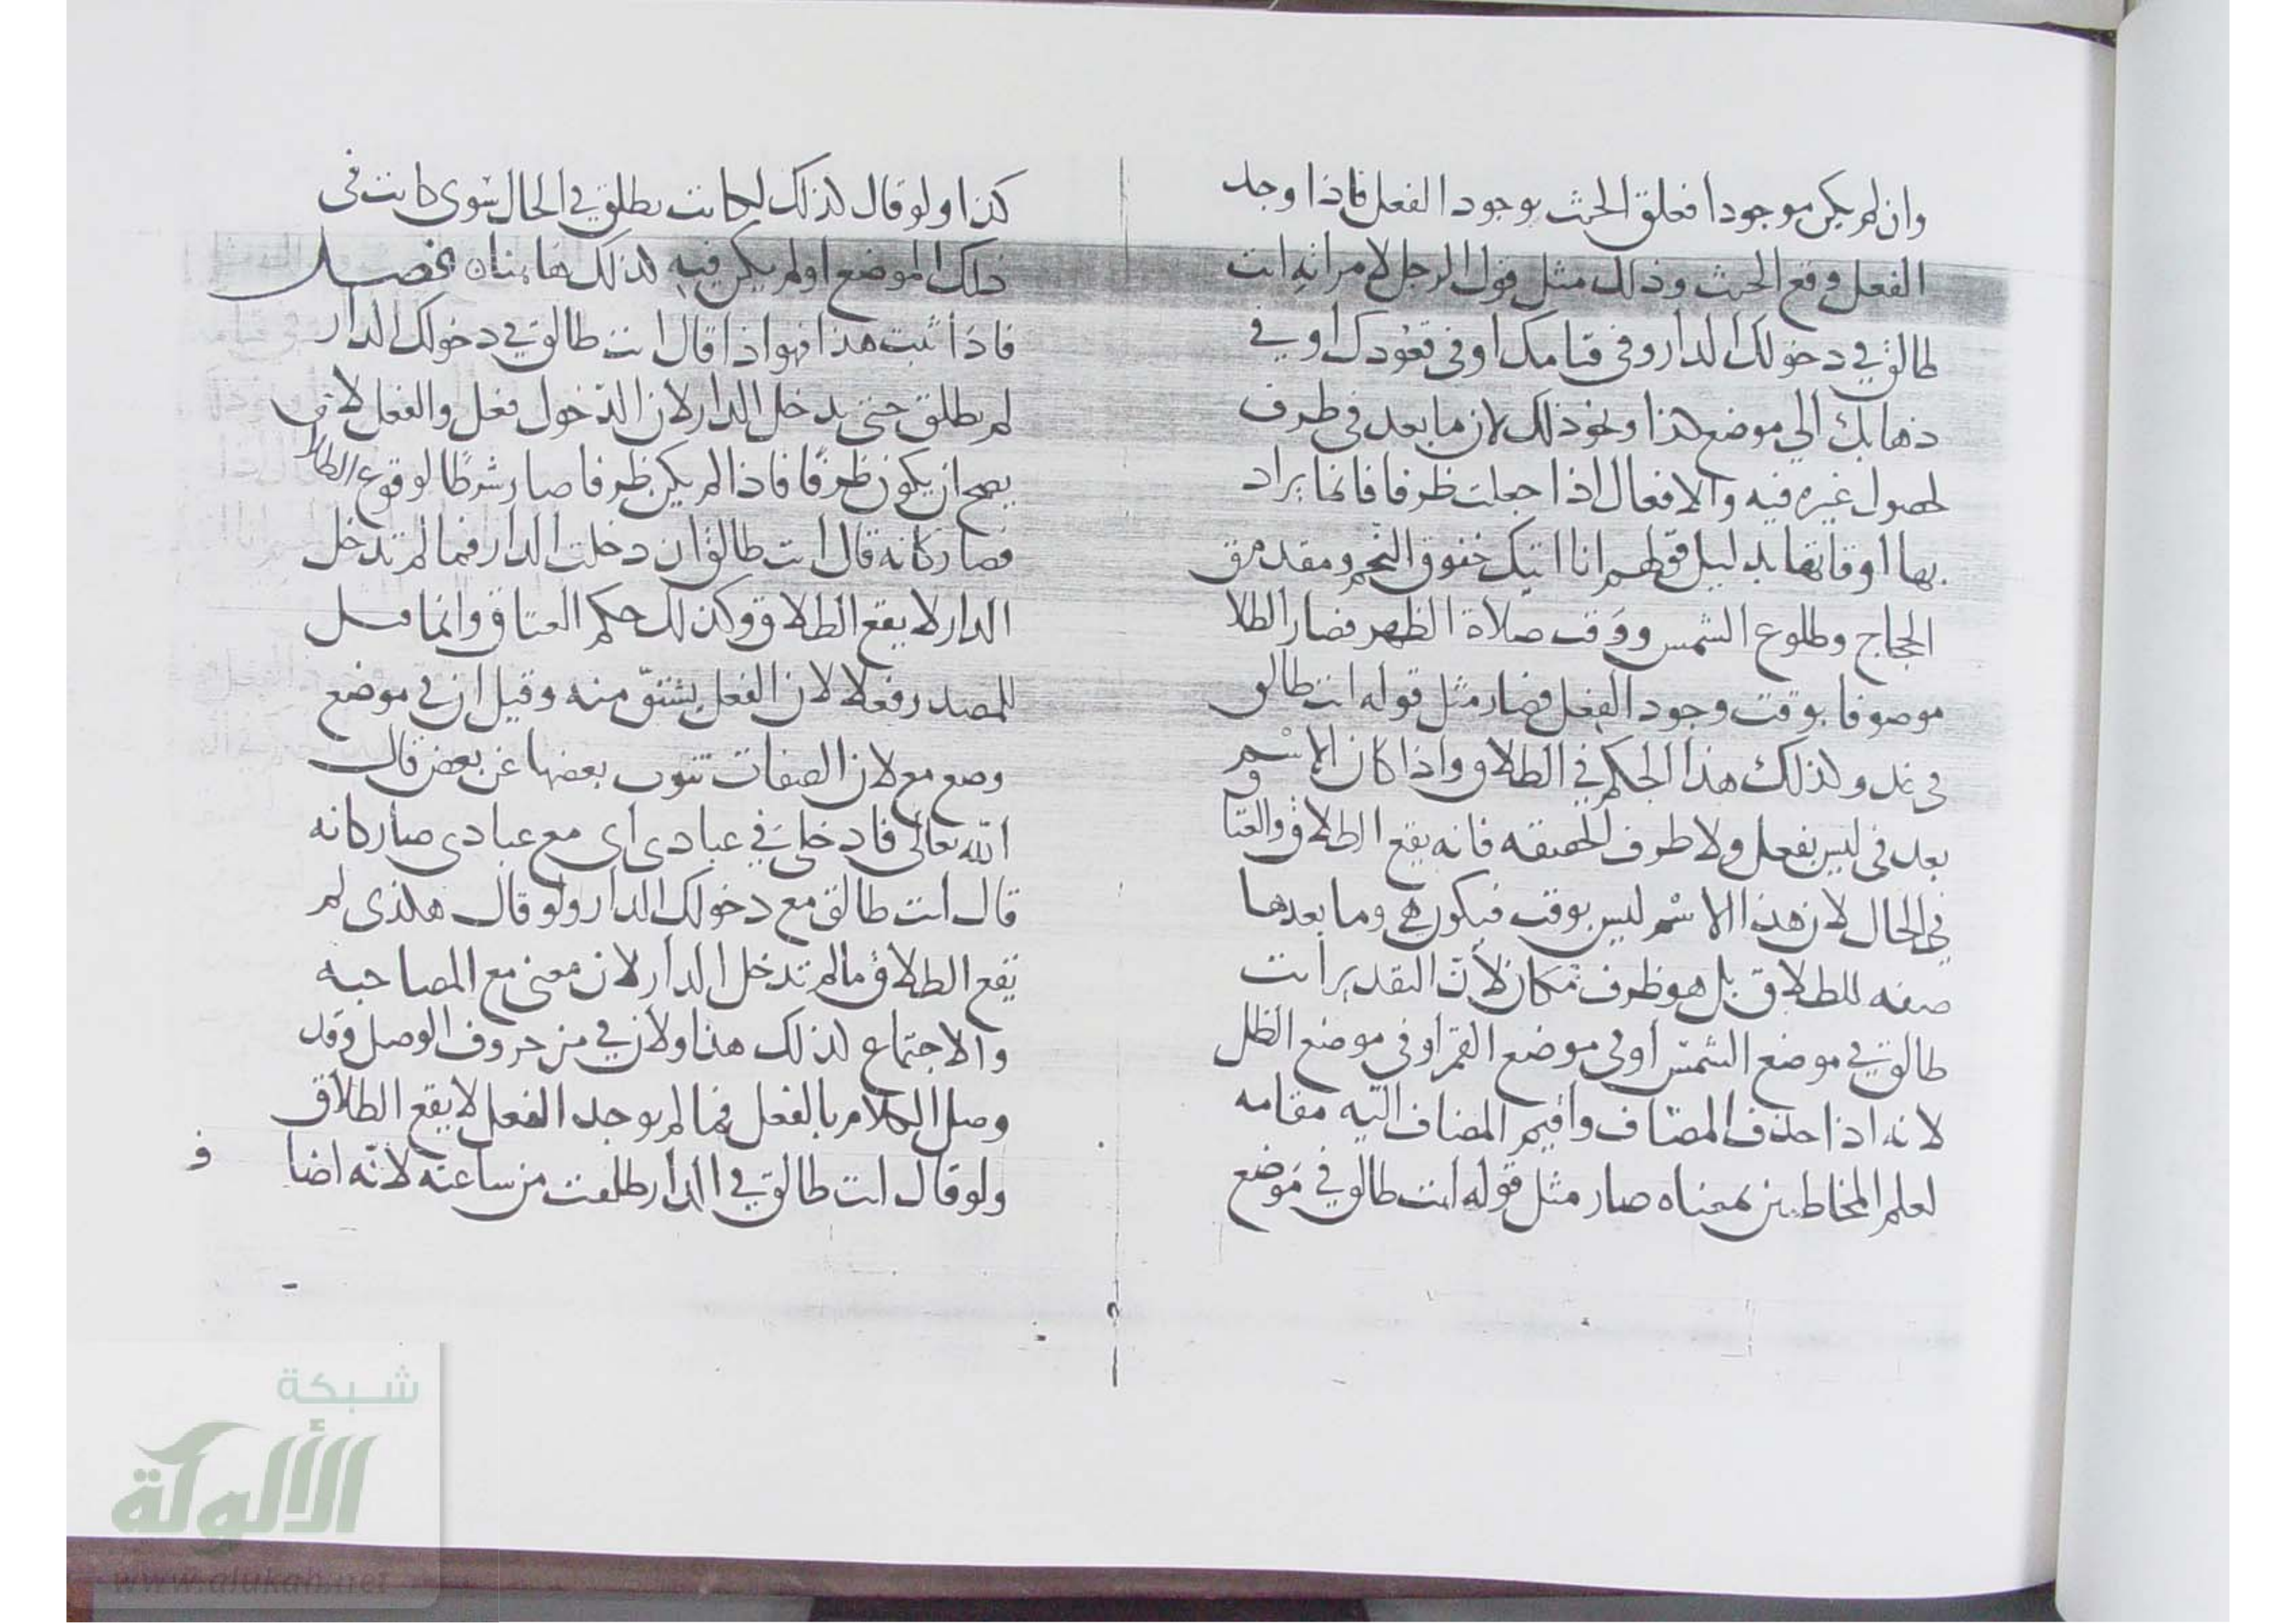 وان لم يكن موجودا فعلق الحنث بوجود الفعل فاذا وجد
الفعل وقع الحنث وذلك مثل قول الرجل لامراته انت
طالق في دخولك الدار وفى قيامك او فى قعودك او في
ذهابك الي موضع كذا ونحو ذلك لان ما بعد فى ظرف
لحصول غيره فيه والافعال اذا جعلت ظرفا فانما يراد
بها اوقاتها بدليل قولهم انا اتيك خفوق النجم ومقدم
الحجاج وطلوع الشمس ووقت صلاة الظهر فصار الطلا
موصوفا بوقت وجود الفعل فصار مثل قوله انت طالق
في غد وكذلك هذا الحكم في الطلاق واذا كان الاسم
بعد فى ليس بفعل ولا ظرف الحقيقه فانه يقع الطلاق والعتا
ق
في الحال لان هذا الاسم ليس بوقت فيكون هي وما بعدها
صفه للطلاق بل هو ظرف مكان لأن التقدير انت
طالق في موضع الشمس او في موضع القمر او في موضع الظل
لانه اذا حذف المضاف واقيم المضاف اليه مقامه
لعلم المخاطبين بمعناه صار مثل قوله انت طالق في موضع
كذا ولو قال كذلك لكانت يطلق في الحال سوى كانت فى
ذلك الموضع او لم يكن فيه كذلك هاهناه فصل
فاذا ثبت هذا فهو اذا قال انت طالق في دخولك الدار
لم يطلق حتى يدخل الدار لان الدخول فعل والفعل لا
يصح ان يكون ظرفا فاذا لم يكن ظرفا صار شرطا لوقوع الطلا
فصار كانه قال انت طالق ان دخلت الدار فما لم تدخل
الدار لا يقع الطلاق وكذلك حكم العتاق وانما قيل
للمصدر فعلا لان الفعل يشتق منه وقيل ان في موضع
وضع مع لان الصفات تنوب بعضها عن بعض قال
الله تعالى فادخلي في عبادى اى مع عبادى صار كانه
قال انت طالق مع دخولك الدار ولو قال هكذى لم
يقع الطلاق ما لم تدخل الدار لان معنى مع المصاحبه
والاجتماع كذلك هذا ولان في من حروف الوصل وقد
وصل الكلام بالفعل فما لم يوجد الفعل لا يقع الطلاق
ولو قال انت طالق في الدار طلقت من ساعته لانه اضا
ف
شبكة
الألوكة
www.alukah.net